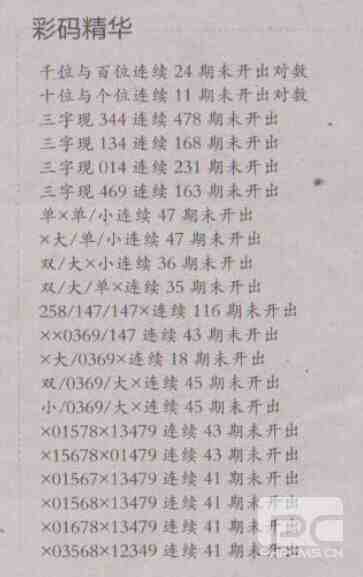 彩码精华
千位与百位连续 24 期未开出对数
十位与个位连续 11 期未开出对数
三字现 344 连续 478 期未开出
三字现 134 连续 168 期未开出
三字现 014 连续 231 期未开出
三字现 469 连续 163 期未开出
单×单/小连续 47 期未开出
×大/单/小连续 47 期未开出
双/大×小连续 36 期未开出
双/大/单×连续 35 期未开出
258/147/147×连续 116 期未开出
××0369/147 连续 43 期未开出
×大/0369×连续 18 期未开出
双/0369/大×连续 45 期未开出
小/0369/大×连续 45 期未开出
×01578×13479 连续 43 期未开出
×15678×01479 连续 43 期未开出
×01567×13479 连续 41 期未开出
×01568×13479 连续 41 期未开出
×01678×13479 连续 41 期未开出
×03568×12349 连续 41 期未开出